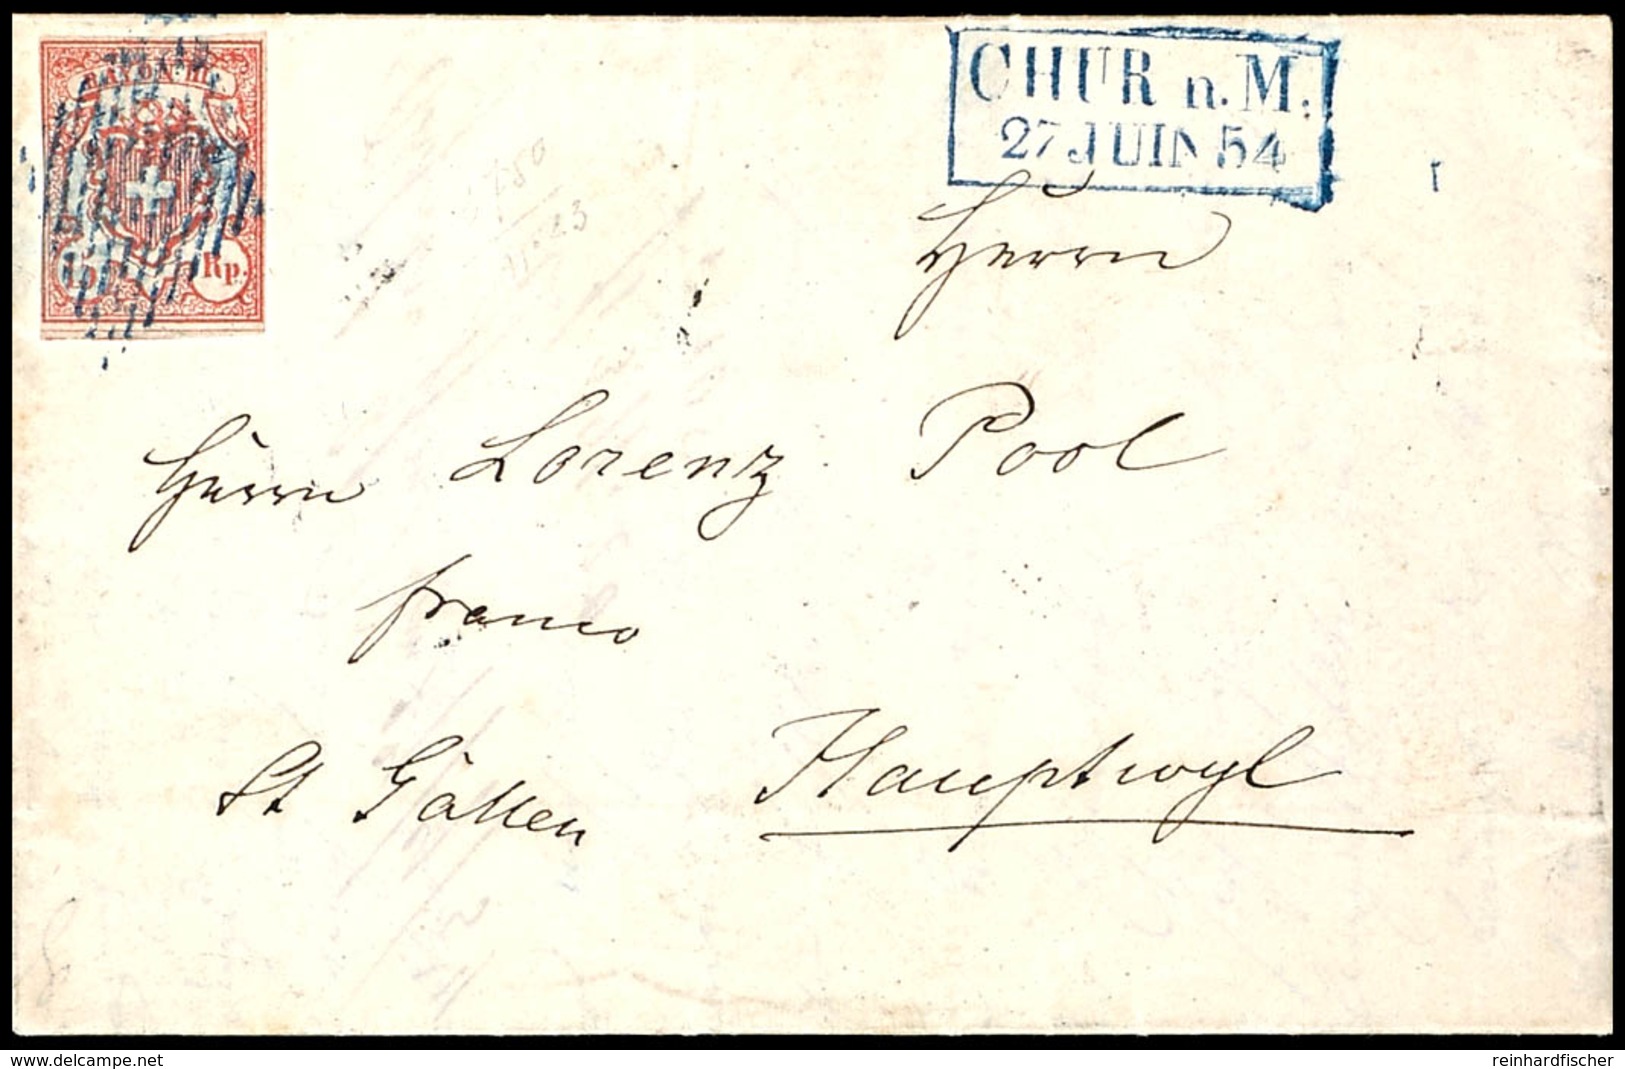 RAYON III
15 Rp.
CHUR n. M.
27 JUIN 54
Herrn
Herrn Lorenz Pool
franco
St Gallen Hauptwyl
delcampe.net
reinhardfischer